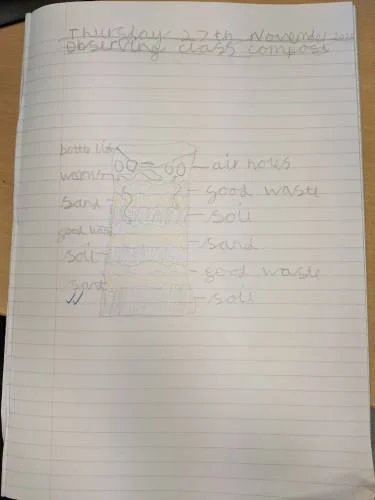 Thursday 27th November
Observing class compost
bottle lid
air holes
worms
good waste
sand
soli
good
sand
soil
good waste
sand
soli